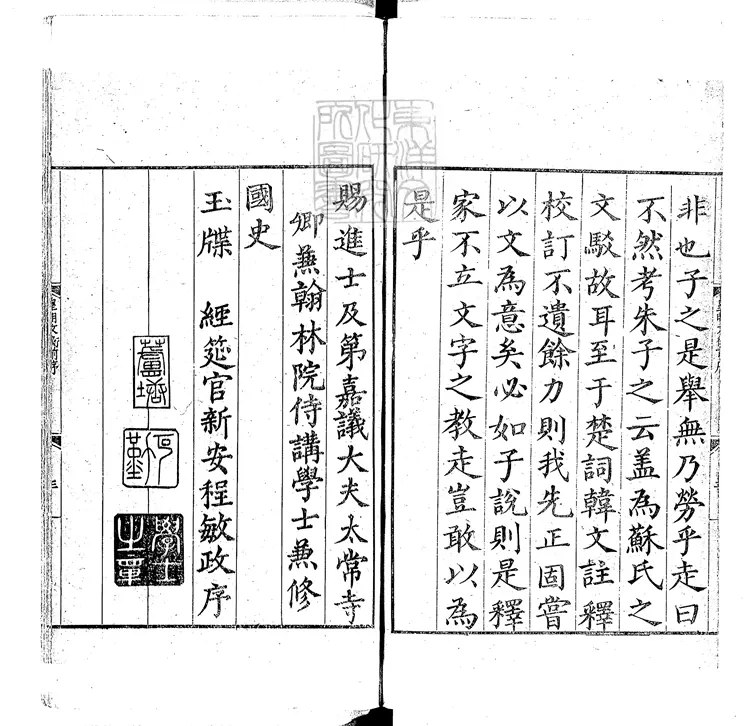 非也子之是舉無乃勞乎走曰
不然考朱子之云盖為蘇氏之
文駁故耳至于楚詞韓文註釋
校訂不遺餘力則我先正固嘗
以文為意矣必如子說則是釋
家不立文字之教走豈敢以為
是乎
賜進士及第嘉議大夫太常寺
卿兼翰林院侍講學士兼修
國史
玉牒 經筵官新安程敏政序
篁墩
學士之章
三